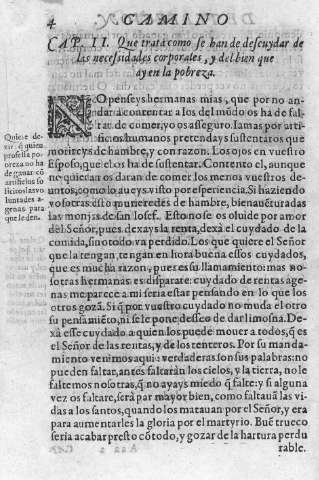 4 CAMINO
CAP. II. Que trata como se han de descuydar de
las necessidades corporales, y del bien que
ay en la pobreza.
NO penseys hermanas mias, que por no an-
dar a contentar a los del mũdo os ha de fal-
tar de comer, yo os asseguro. Iamas por artifi-
cios humanos pretendays sustentaros que
morireys de hambre, y con razon. Los ojos en vuestro
Esposo, que el os ha de sustentar. Contento el, aunque
no quieran os daran de comer los menos vuestros de-
uotos, como lo aueys visto por esperiencia. Si haziendo
vosotras esto murieredes de hambre, bienauēturadas
las monjas de san Iosef. Esto no se os oluide por amor
del Señor, pues dexays la renta, dexà el cuydado de la
comida, sino todo va perdido. Los que quiere el Señor
que la tengan, tengan en hora buena essos cuydados,
que es mucha razon, pues es su llamamiento: mas no-
sotras hermanas es disparate: cuydado de rentas age-
nas me parece a mi seria estar pensando en lo que los
otros gozã. Si q̃ por vuestro cuydado no muda el otro
su pensamiēto, ni se le pone desseo de dar limosna. De-
xà esse cuydado a quien los puede mouer a todos, q̃ es
el Señor de las rentas, y de los renteros. Por su man-
damiento venimos aqui: verdaderas son sus palabras: no
pueden faltar, antes faltaràn los cielos, y la tierra, no le
faltemos nosotras, q̃ no ayays miedo q̃ falte: y si alguna
vez os faltare, serà par mayor bien, como faltauã las vi-
das a los santos, quando los matauan por el Señor, y era
para aumentarles la gloria por el martyrio. Buē trueco
seria acabar presto cõ todo, y gozar de la hartura perdu
rable.
Quiere de-
zir, q̃ quien
professa po-
breza no ha
de ganar cõ
artificios so
licitos las vo
luntades a-
genas para
que le den.